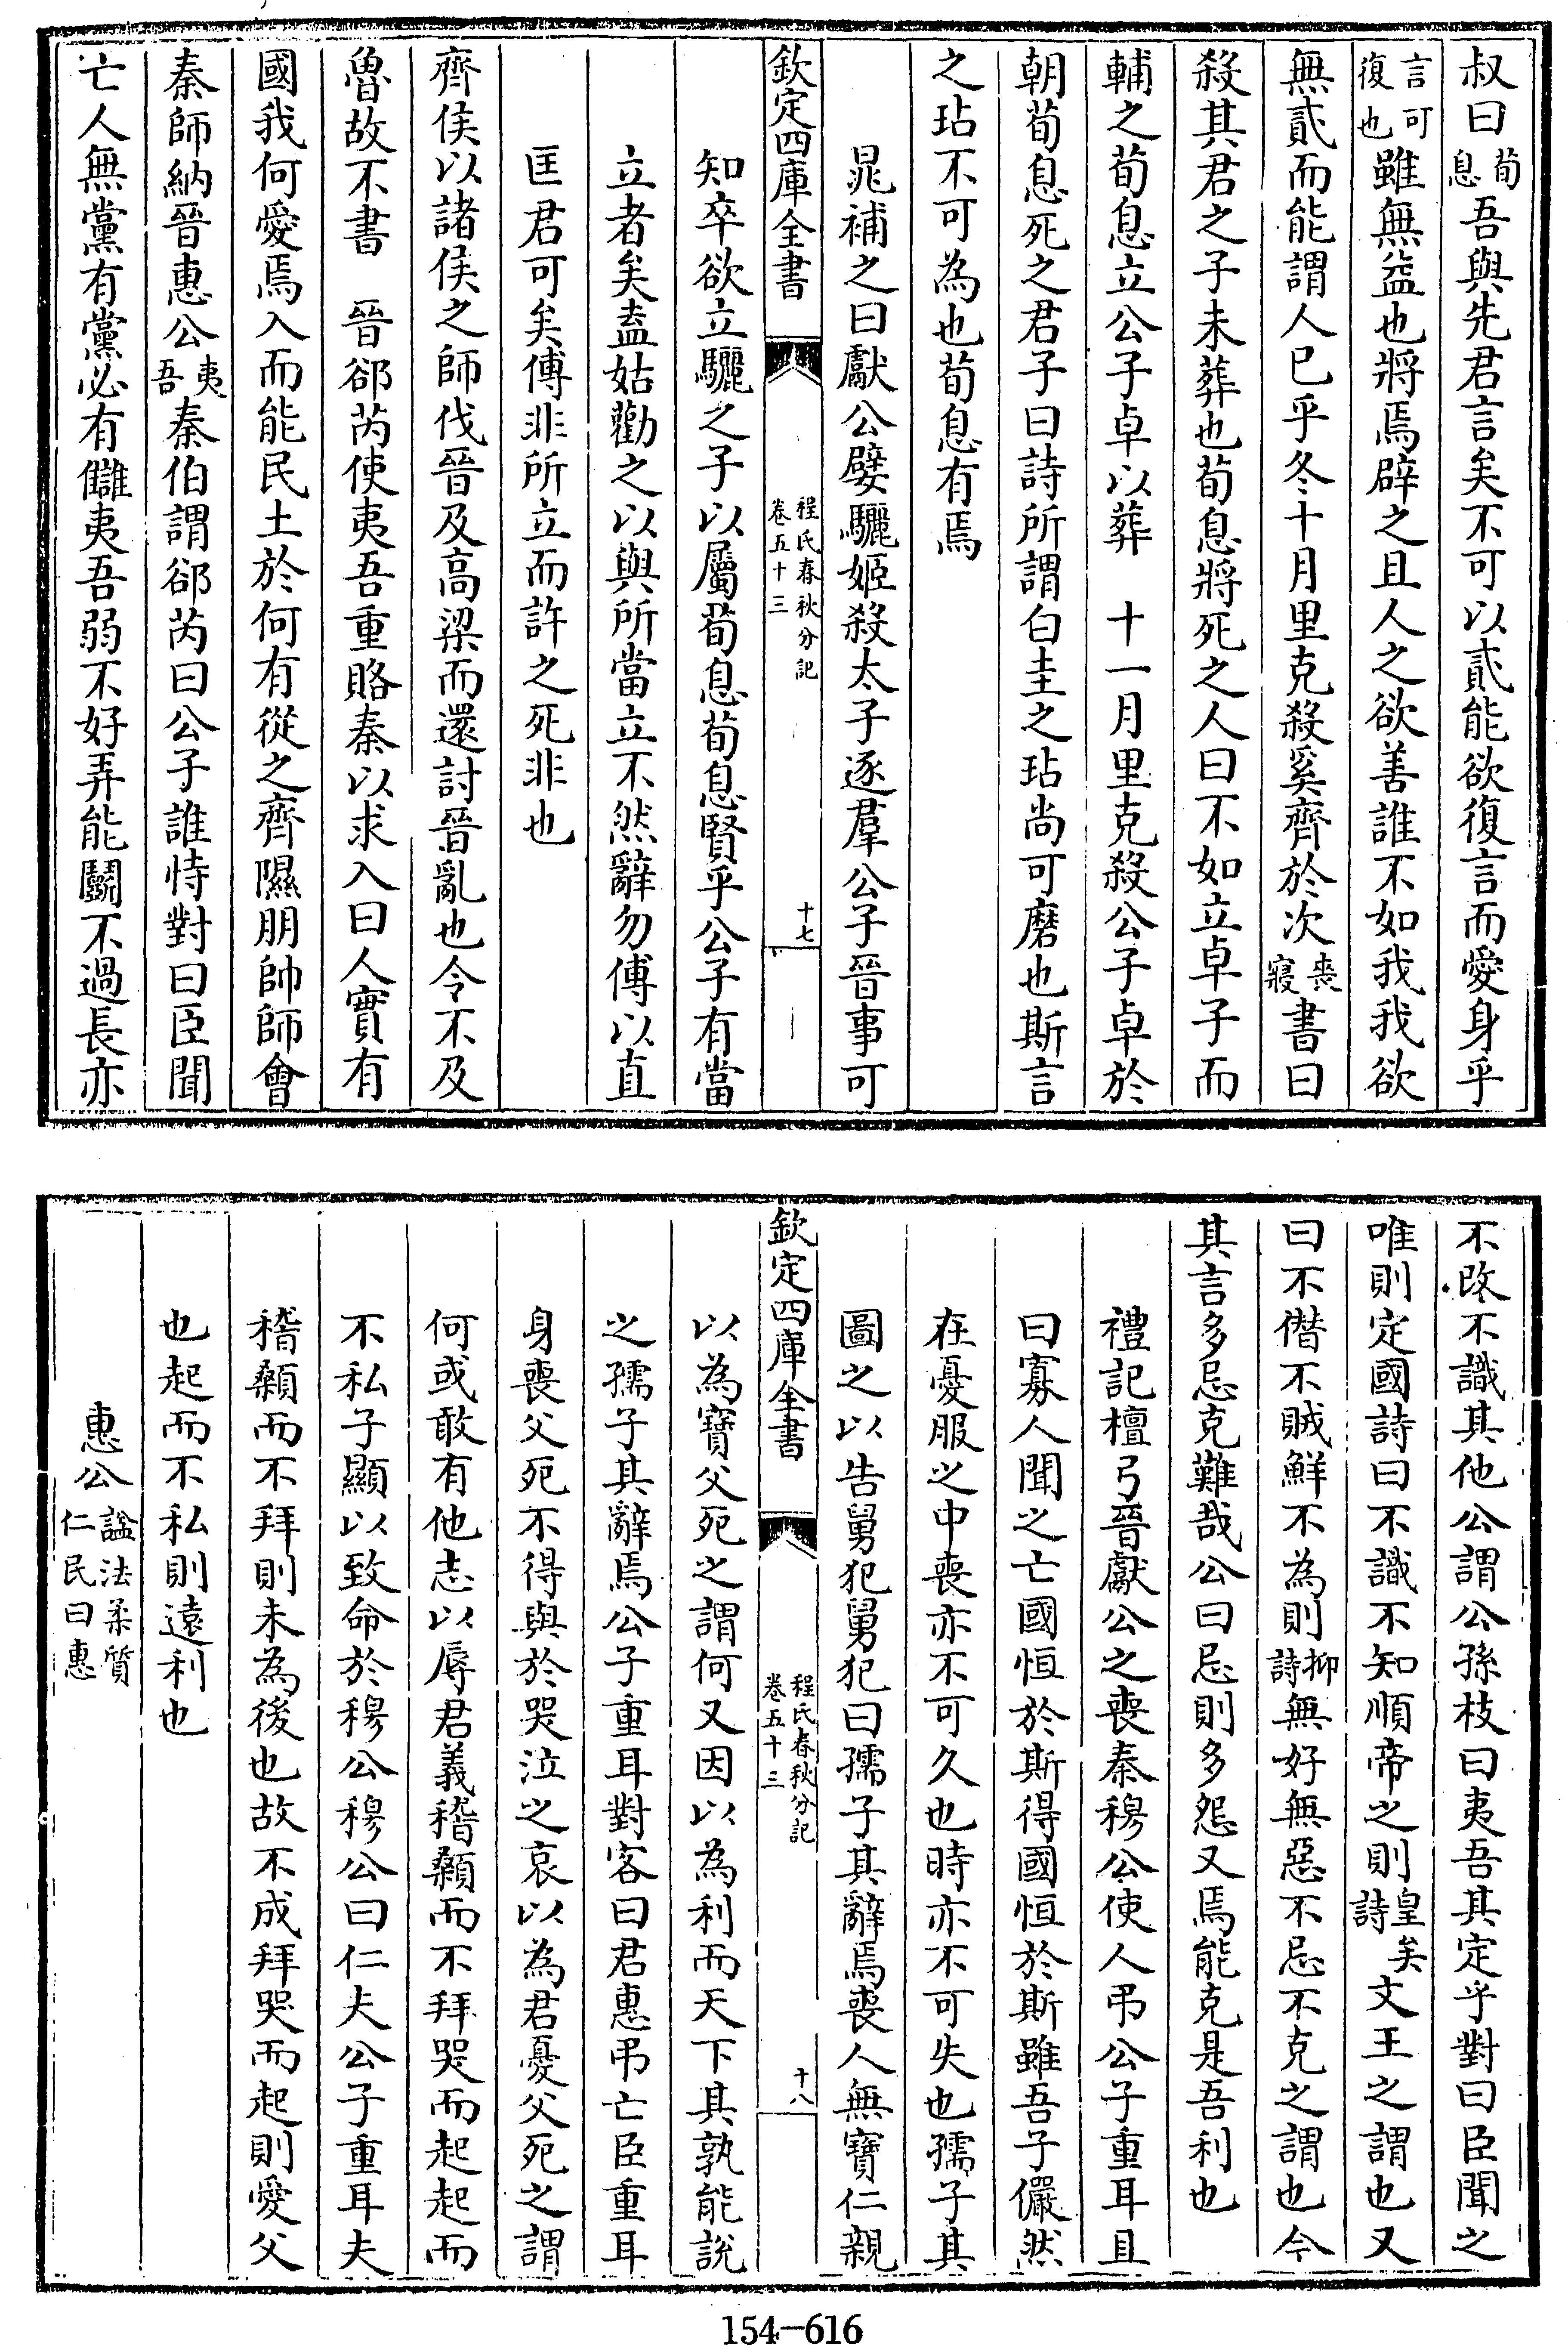 叔曰荀息吾與先君言矣不可以貳能欲復言而愛身乎
言可復也雖無益也將焉辟之且人之欲善誰不如我我欲
無貳而能謂人已乎冬十月里克殺奚齊於次喪寢書曰
殺其君之子未葬也荀息將死之人曰不如立卓子而
輔之荀息立公子卓以葬　十一月里克殺公子卓於
朝荀息死之君子曰詩所謂白圭之玷尚可磨也斯言
之玷不可為也荀息有焉
晁補之曰獻公嬖驪姬殺太子逐羣公子晉事可
欽定四庫全書
程氏春秋分記
卷五十三
十七
知卒欲立驪之子以屬荀息荀息賢乎公子有當
立者矣盍姑勸之以與所當立不然辭勿傅以直
匡君可矣傅非所立而許之死非也
齊侯以諸侯之師伐晉及高梁而還討晉亂也令不及
魯故不書　晉郤芮使夷吾重賂秦以求入曰人實有
國我何愛焉入而能民土於何有從之齊隰朋帥師會
秦師納晉惠公夷吾秦伯謂郤芮曰公子誰恃對曰臣聞
亡人無黨有黨必有讎夷吾弱不好弄能鬭不過長亦
不改不識其他公謂公孫枝曰夷吾其定乎對曰臣聞之
唯則定國詩曰不識不知順帝之則皇矣詩文王之謂也又
曰不僭不賊鮮不為則抑詩無好無惡不忌不克之謂也今
其言多忌克難哉公曰忌則多怨又焉能克是吾利也
禮記檀弓晉獻公之喪秦穆公使人弔公子重耳且
曰寡人聞之亡國恒於斯得國恒於斯雖吾子儼然
在憂服之中喪亦不可久也時亦不可失也孺子其
圖之以告舅犯舅犯曰孺子其辭焉喪人無寶仁親
欽定四庫全書
程氏春秋分記
卷五十三
十八
以為寶父死之謂何又因以為利而天下其孰能說
之孺子其辭焉公子重耳對客曰君惠弔亡臣重耳
身喪父死不得與於哭泣之哀以為君憂父死之謂
何或敢有他志以辱君義稽顙而不拜哭而起起而
不私子顯以致命於穆公穆公曰仁夫公子重耳夫
稽顙而不拜則未為後也故不成拜哭而起則愛父
也起而不私則遠利也
惠公諡法柔質仁民曰惠
154-616